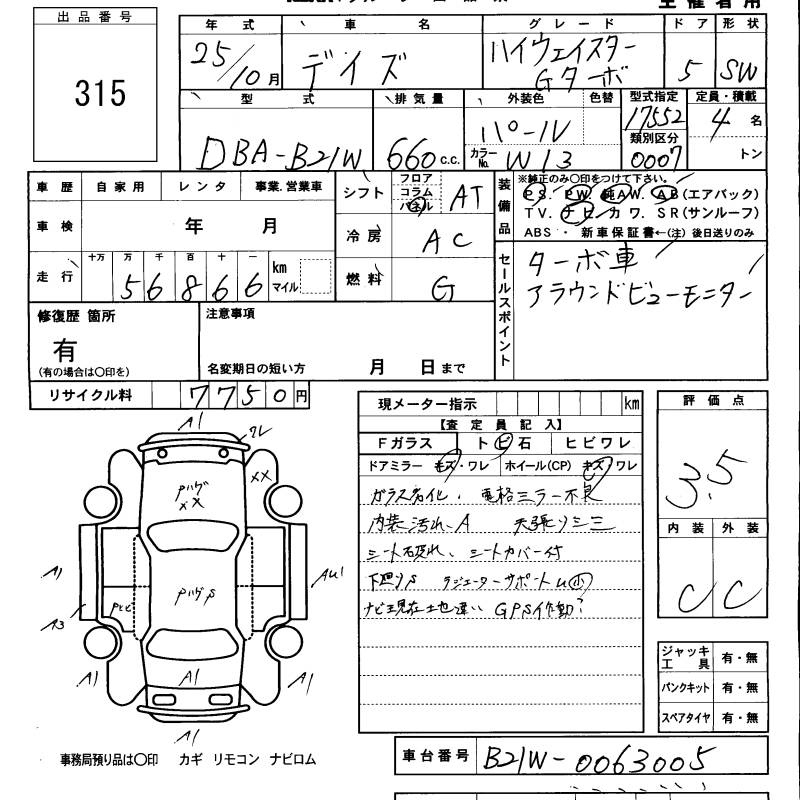 出品番号
315
年式 車名 グレード ドア 形状
25/10月 デイズ ハイウェイスター Gターボ 5 SW
型式 排気量 外装色 色替 型式指定 定員・積載
DBA-B21W 660 c.c. パール 17552 4名
カラーNo. W13 類別区分 0007 トン
車歴 自家用 レンタ 事業.営業車
車検 年 月
走行 十万 万 千 百 十 一
56866 km マイル
シフト フロア コラム パネル AT
冷房 AC
燃料 G
装備品
※純正のみ〇印をつけて下さい。
PS. PW. 純AW. AB(エアバック)
TV. ナビ. カワ. SR(サンルーフ)
ABS・新車保証書←(注)後日送りのみ
セールスポイント
ターボ車
アラウンドビューモニター
修復歴 箇所
有
(有の場合は〇印を)
注意事項
名変期日の短い方 月 日まで
リサイクル料 7750円
現メーター指示 km
【査定員記入】
Fガラス トビ石 ヒビワレ
ドアミラー キズ・ワレ ホイール(CP) キズ・ワレ
ガラス劣化、電格ミラー不良
内装汚れ、A 天張りシミ
シート破れ、シートカバー付
下廻りS ラジエーターサポートU小
ナビ現在地違い GPS作動?
評価点
3.5
内装 外装
C C
ジャッキ工具 有・無
パンクキット 有・無
スペアタイヤ 有・無
A1
ワレ
XX
XX
A1
AU1
A3
A1
A1
A1
A1
事務局預り品は〇印 カギ リモコン ナビロム
車台番号 B21W-0063005